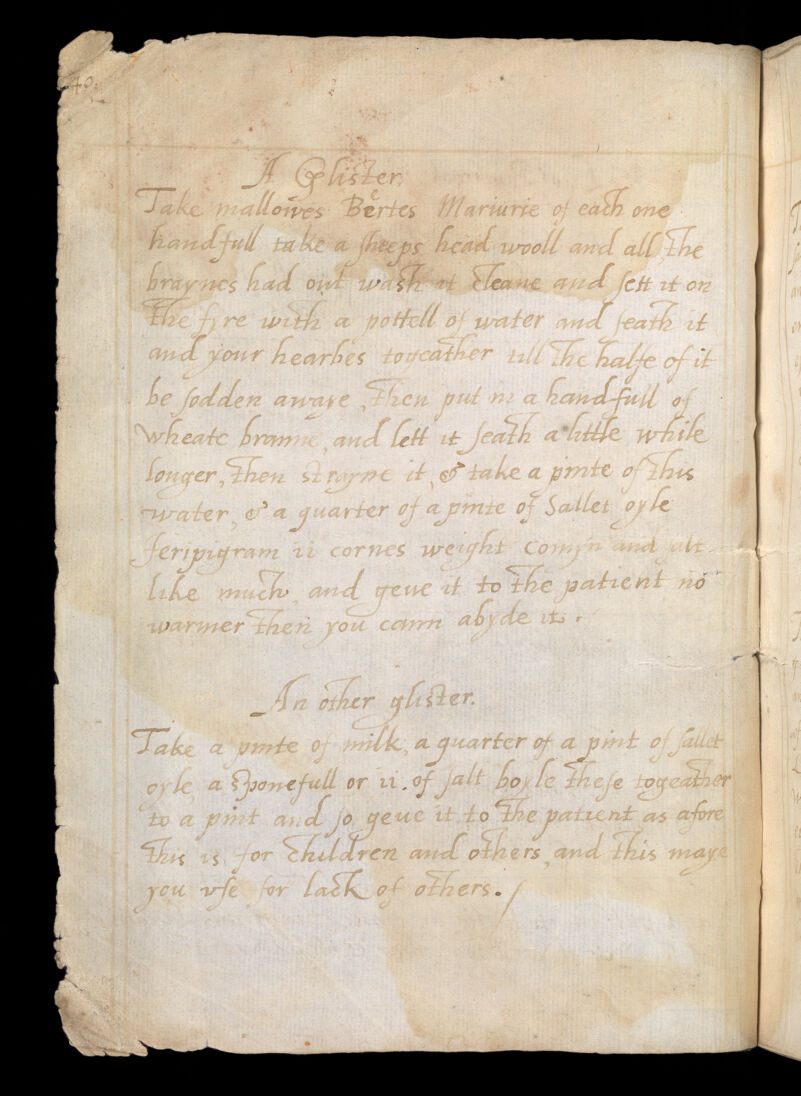 A Glister.
Take mallowes Beetes Mariurie of each one
handfull take a sheeps head wooll and all, the
braynes had out wash it cleane and sett it on
the fyre with a pottell of water and seath it
and your hearbes togeather till the halfe of it
be sodden awaye, then put in a handfull of
wheate branne, and lett it seath a little while
longer, then strayne it, & take a pinte of this
water, & a quarter of a pinte of Sallet oyle
Jeripigram ii cornes weight Comyn and alt
like much, and geve it to the patient no
warmer then you cann abyde it.
An other glister.
Take a pinte of milk, a quarter of a pint of sallet
oyle, a sponefull or ii. of salt boyle these togeather
to a pint and so geve it to the patient as afore
this is for children and others, and this maye
you vse for lack of others. /